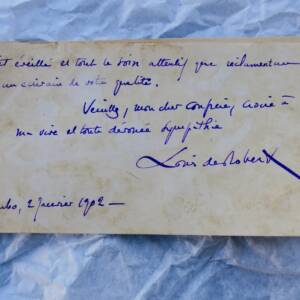 éveillé et tout le soin attentif que réclament
un écrivain de votre qualité.
Veuillez, mon cher confrère, croire à
ma vive et toute dévouée sympathie
Louis de Robert
2 Janvier 1902 —